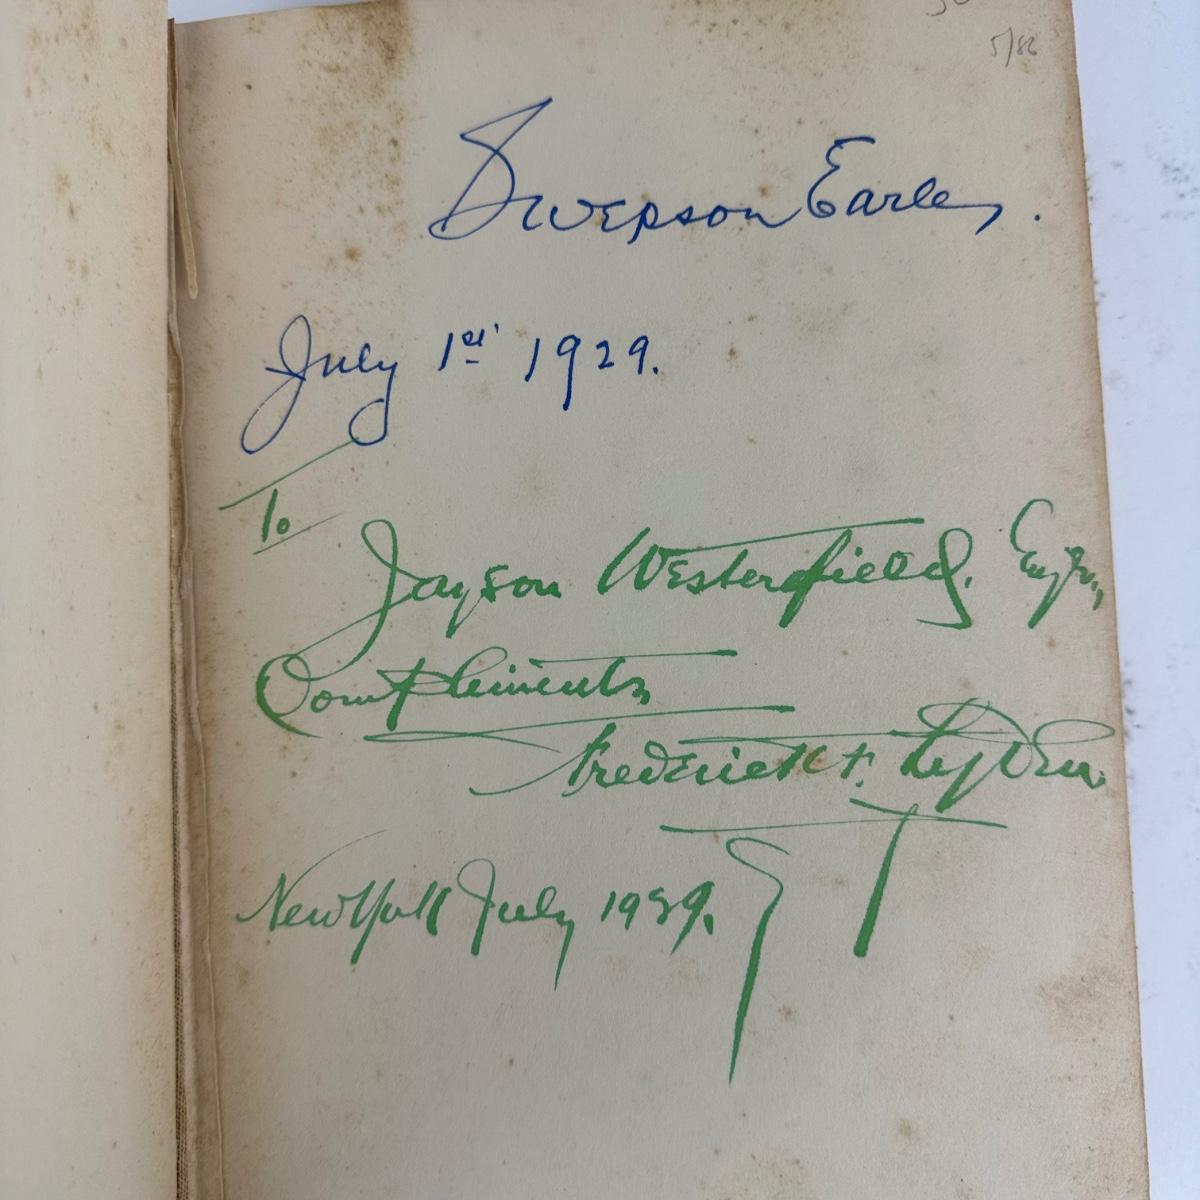 5/86
Swepson Earle.
July 1st 1929.
To
Jayson Westerfield, Esqr,
Compliments
Frederick F.
New York July 1929.